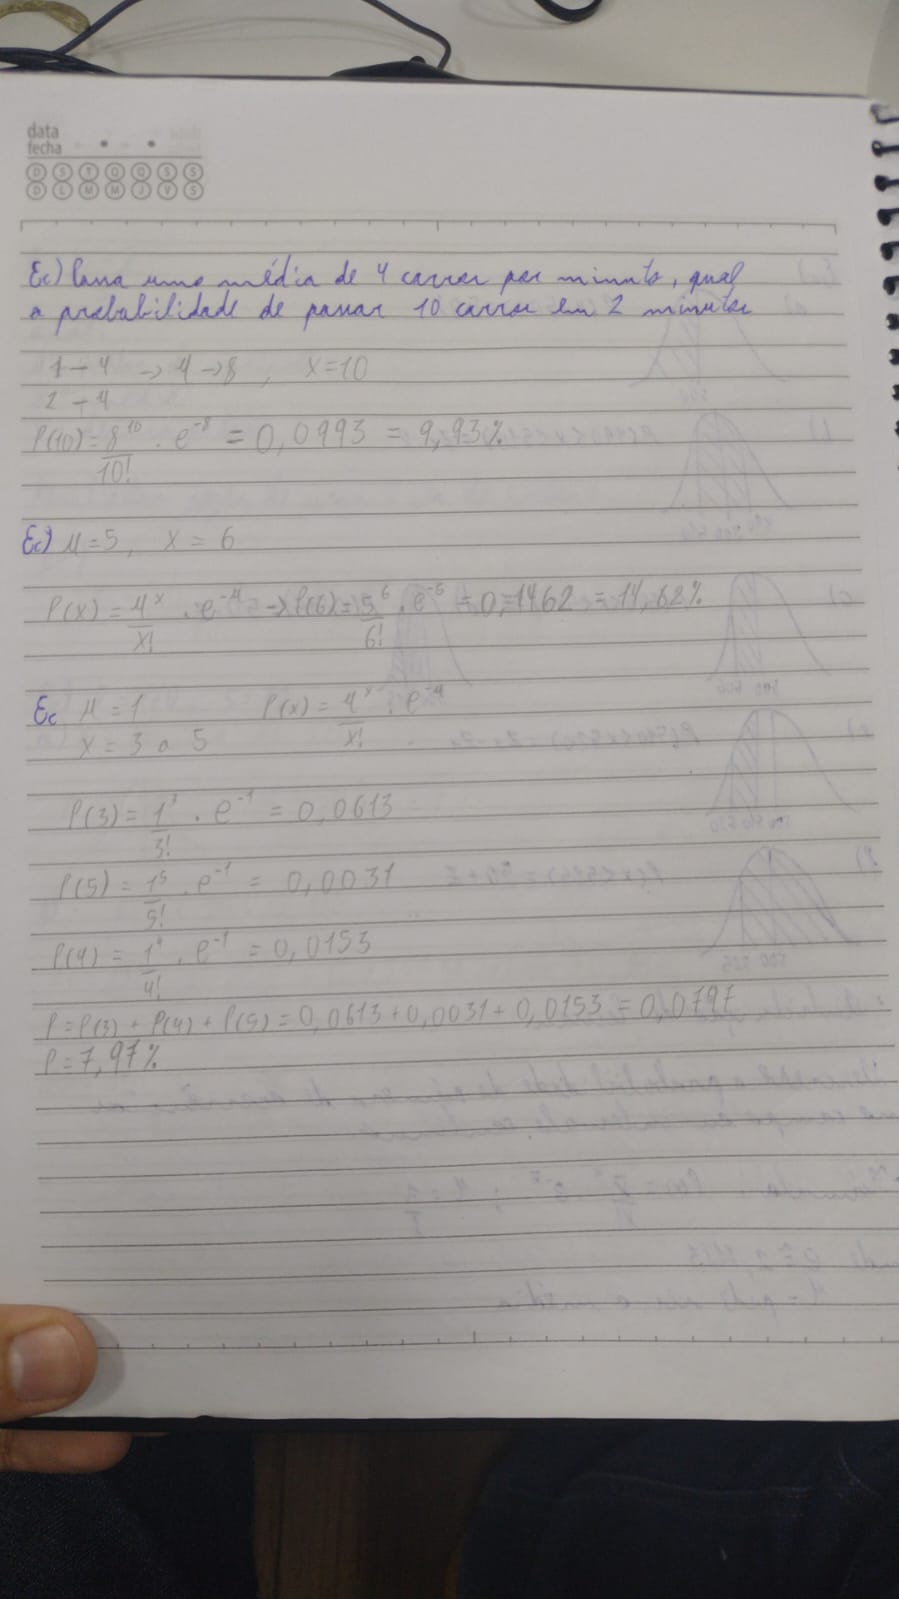 data
fecha
D S T Q Q S S
D L M M J V S
Ex) Passa uma média de 4 carros por minuto, qual
a probabilidade de passar 10 carros em 2 minutos
1 - 4 → μ → 8 , x = 10
2 - μ
P(10) = 8^10/10! . e^-8 = 0,0993 = 9,93%
Ex) μ = 5, x = 6
P(x) = μ^x/x! . e^-μ → P(6) = 5^6/6! . e^-5 = 0,1462 = 14,62%
Ex μ = 1 P(x) = μ^x/x! . e^-μ
x = 3 a 5
P(3) = 1^3/3! . e^-1 = 0,0613
P(5) = 1^5/5! . e^-1 = 0,0031
P(4) = 1^4/4! . e^-1 = 0,0153
P = P(3) + P(4) + P(5) = 0,0613 + 0,0031 + 0,0153 = 0,0797
P = 7,97%